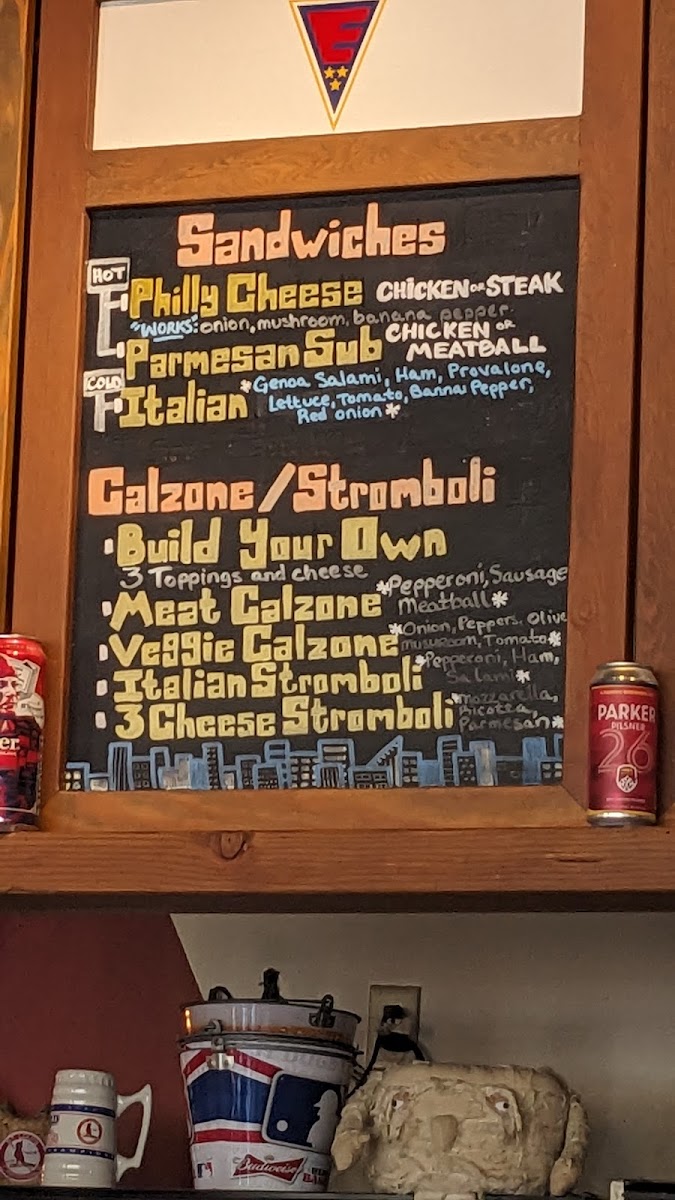 E
Sandwiches
HOT
Philly Cheese CHICKEN OR STEAK
"WORKS": onion, mushroom, banana pepper
Parmesan Sub CHICKEN OR
MEATBALL
COLD
Italian *Genoa Salami, Ham, Provalone,
Lettuce, Tomato, Banna Pepper,
Red onion*
Calzone/Stromboli
Build Your Own
3 Toppings and cheese
Meat Calzone *Pepperoni, Sausage
Meatball*
Veggie Calzone *Onion, Peppers, Olive
mushroom, Tomato*
Italian Stromboli *Pepperoni, Ham,
Salami*
3 Cheese Stromboli *mozzarella,
Ricotta,
Parmesan*
PARKER
PILSNER
26
Budweiser